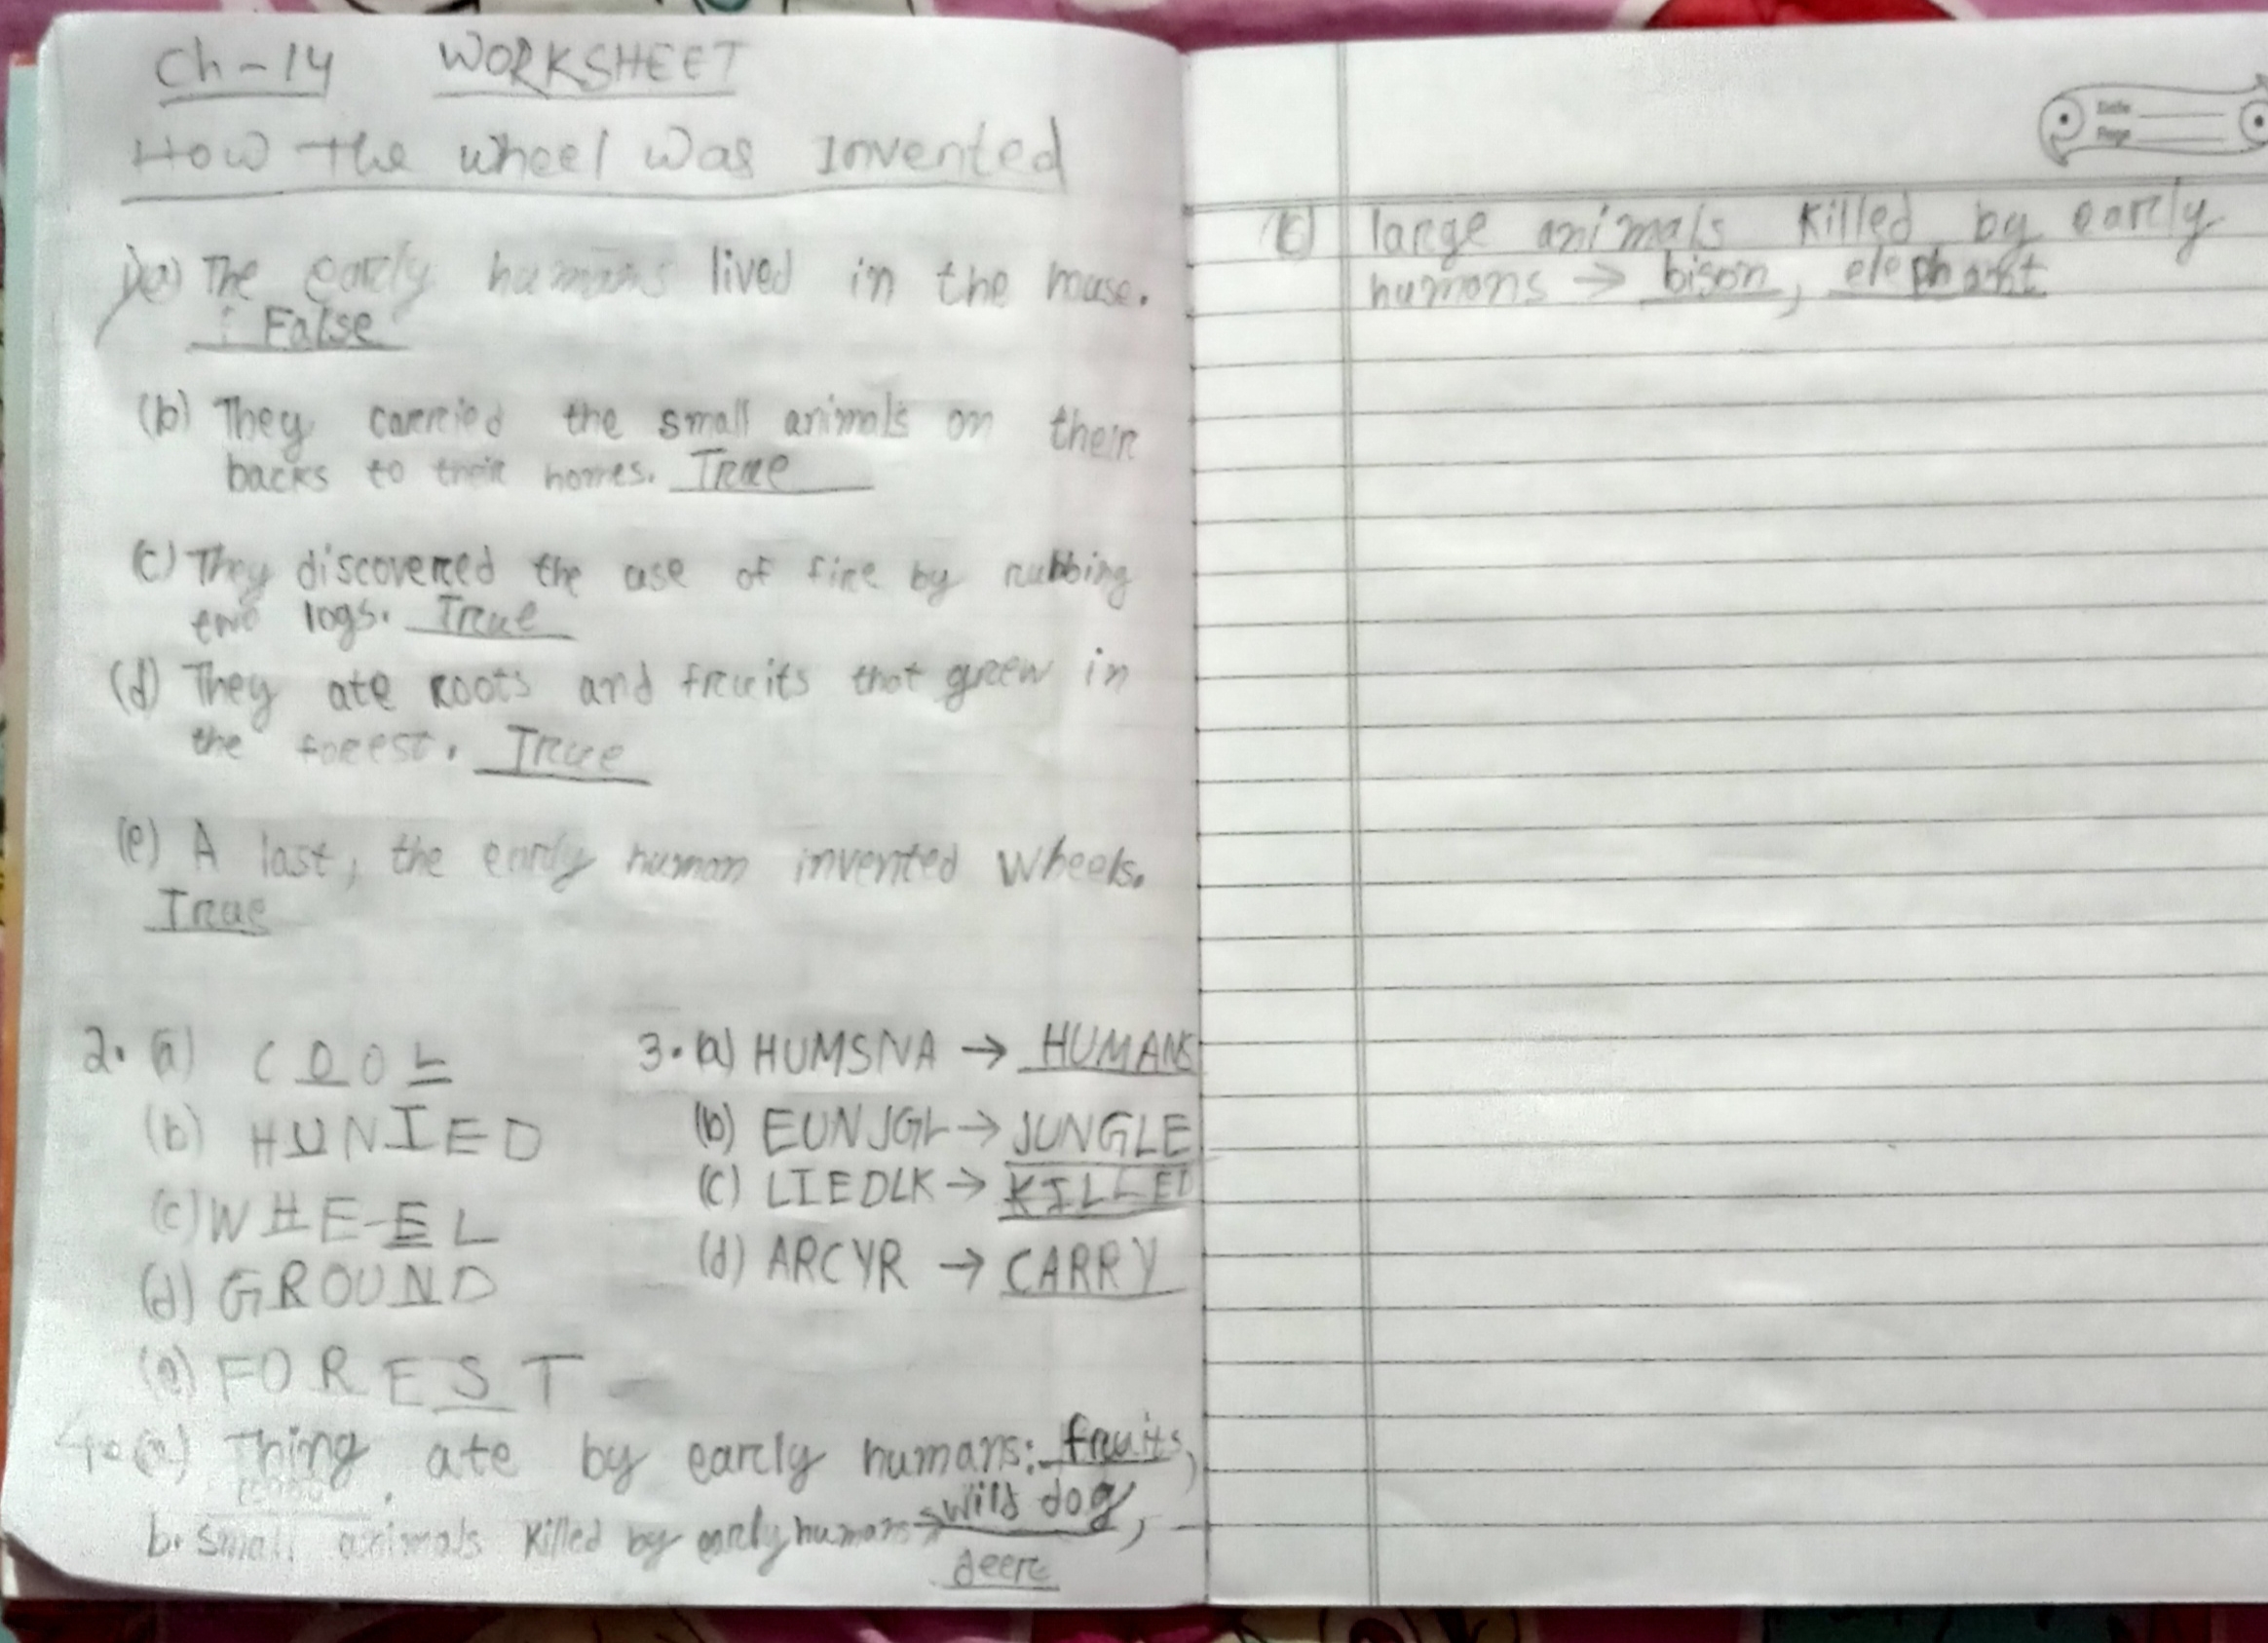 Ch-14 WORKSHEET
How the wheel was Invented
1)a) The early humans lived in the house.
False
(b) They carried the small animals on their
backs to their homes. True
(c) They discovered the use of fire by rubbing
two logs. True
(d) They ate roots and fruits that grew in
the forest. True
(e) A last, the early human invented wheels.
True
2. (a) COOL
(b) HUNTED
(c) WHEEL
(d) GROUND
(e) FOREST
3. (a) HUMSNA → HUMANS
(b) EUNJGL → JUNGLE
(c) LIEDLK → KILLED
(d) ARCYR → CARRY
4. (a) Thing ate by early humans: fruits,
b. Small animals killed by early humans → wild dog,
deer
Date
Page
(c) large animals killed by early
humans → bison, elephant